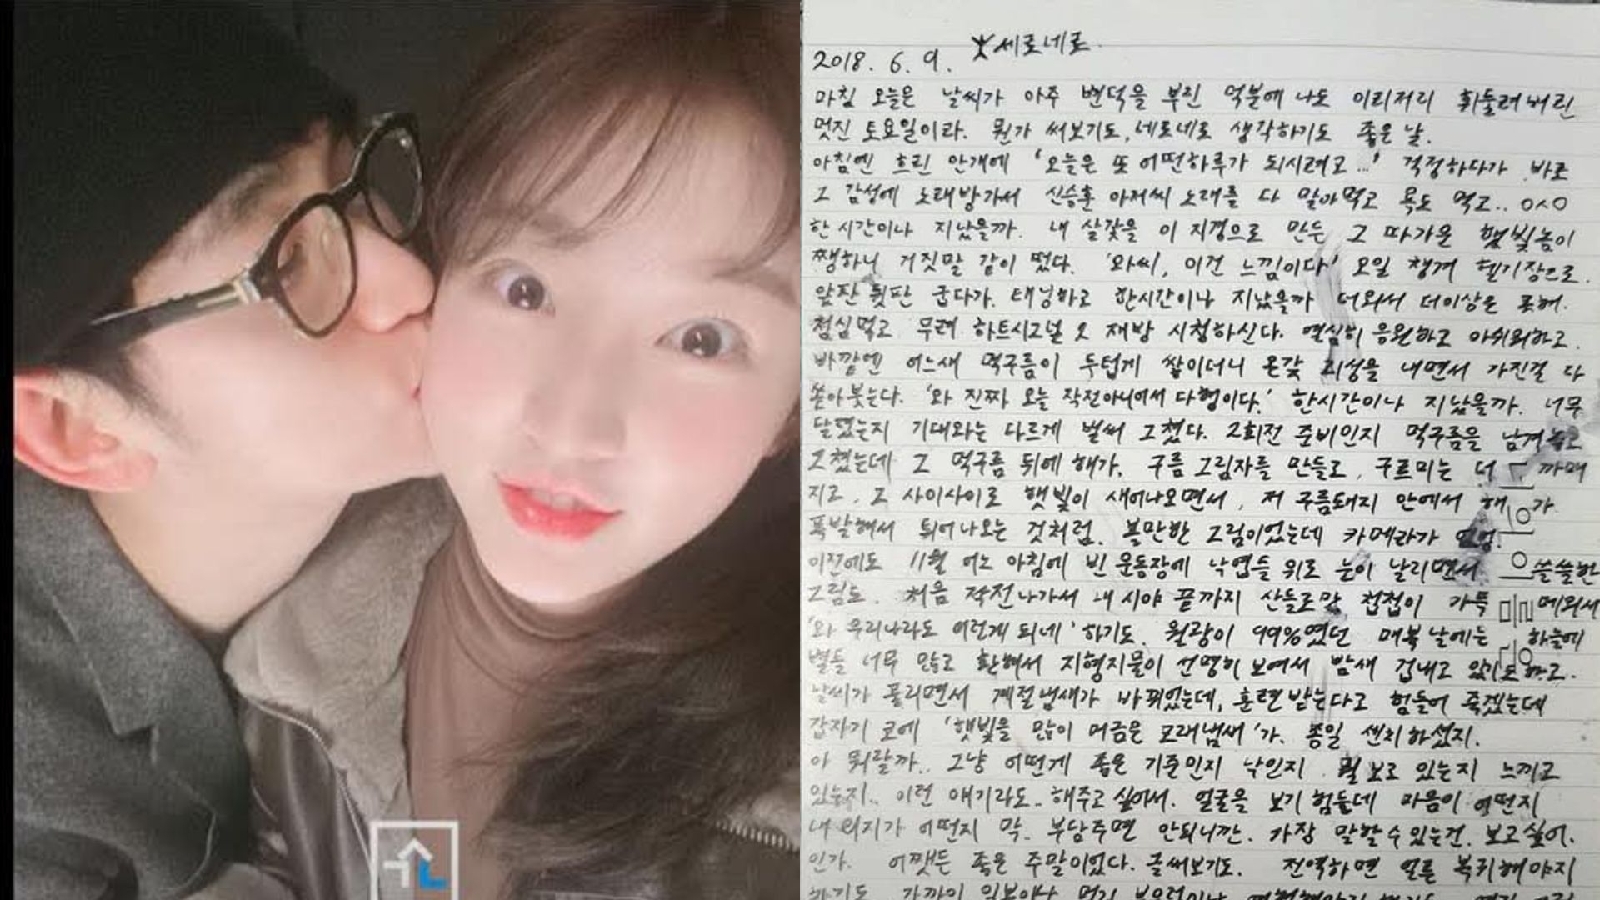 2018. 6. 9. 세로네로.
마침 오늘은 날씨가 아주 변덕을 부린 덕분에 나도 이리저리 휘둘려버린
멋진 토요일이라. 뭔가 써보기도, 네로네로 생각하기도 좋은 날.
아침엔 흐린 안개에 '오늘은 또 어떤하루가 되시려고...' 걱정하다가 바로
그 감성에 노래방가서 신승훈 아저씨 노래를 다 말아먹고 욕도 먹고.. ㅇㅅㅇ
한시간이나 지났을까. 내 살갗을 이 지경으로 만든 그 따가운 햇빛놈이
쨍하니 거짓말 같이 떴다. '와씨, 이건 느낌이다' 오일 챙겨 헬기장으로.
앞판 뒷판 굽다가. 태닝하고 한시간이나 지났을까 더워서 더이상은 못해.
점심먹고 무려 하트시그널 2 재방 시청하신다. 열심히 응원하고 아쉬워하고.
바깥엔 어느새 먹구름이 두텁게 쌓이더니 온갖 괴성을 내면서 가진걸 다
쏟아붓는다. '와 진짜 오늘 작전아니어서 다행이다.' 한시간이나 지났을까. 너무
달렸는지 기대와는 다르게 벌써 그쳤다. 2회전 준비인지 먹구름을 남겨놓고
그쳤는데 그 먹구름 뒤에 해가. 구름 그림자를 만들고, 구르미는 더 까매
지고, 그 사이사이로 햇빛이 새어나오면서, 저 구름돼지 안에서 해가
폭발해서 튀어나오는 것처럼. 볼만한 그림이었는데 카메라가
이전에도 11월 어느 아침에 빈 운동장에 낙엽들 위로 눈이 날리면서 쓸쓸한
그림도. 처음 작전나가서 내 시야 끝까지 산들로만 첩첩이 가득 메워서
'와 우리나라도 이런게 되네' 하기도. 월광이 99%였던 매복날에는 하늘에
별들 너무 많고 환해서 지형지물이 선명히 보여서 밤새 겁내고 있기도 하고.
날씨가 풀리면서 계절냄새가 바뀌었는데, 훈련받는다고 힘들어 죽겠는데
갑자기 코에 '햇빛을 많이 머금은 모래냄새'가. 종일 센치하셨지.
아 뭐랄까.. 그냥 어떤게 좋은 기준인지 낙인지. 뭘 보고 있는지 느끼고
있는지.. 이런 얘기라도.. 해주고 싶어서. 얼굴을 보기 힘들데 마음이 어떤지
내 의지가 어떤지 막. 부담주면 안되니깐. 가장 말할수있는건. 보고싶어.
인가. 어쨋든 좋은 주말이었다. 글써보기도. 전역하면 얼른 복귀해야지
하기도